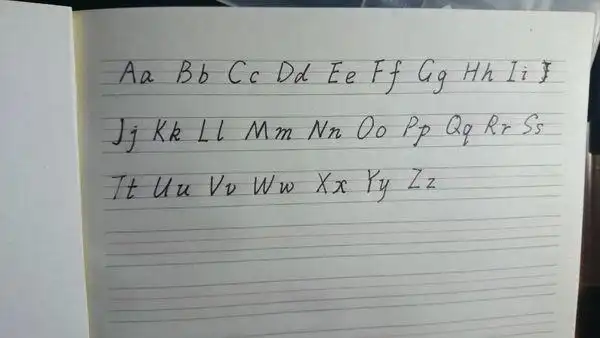 Aa Bb Cc Dd Ee Ff Gg Hh Ii
Jj Kk Ll Mm Nn Oo Pp Qq Rr Ss
Tt Uu Vv Ww Xx Yy Zz